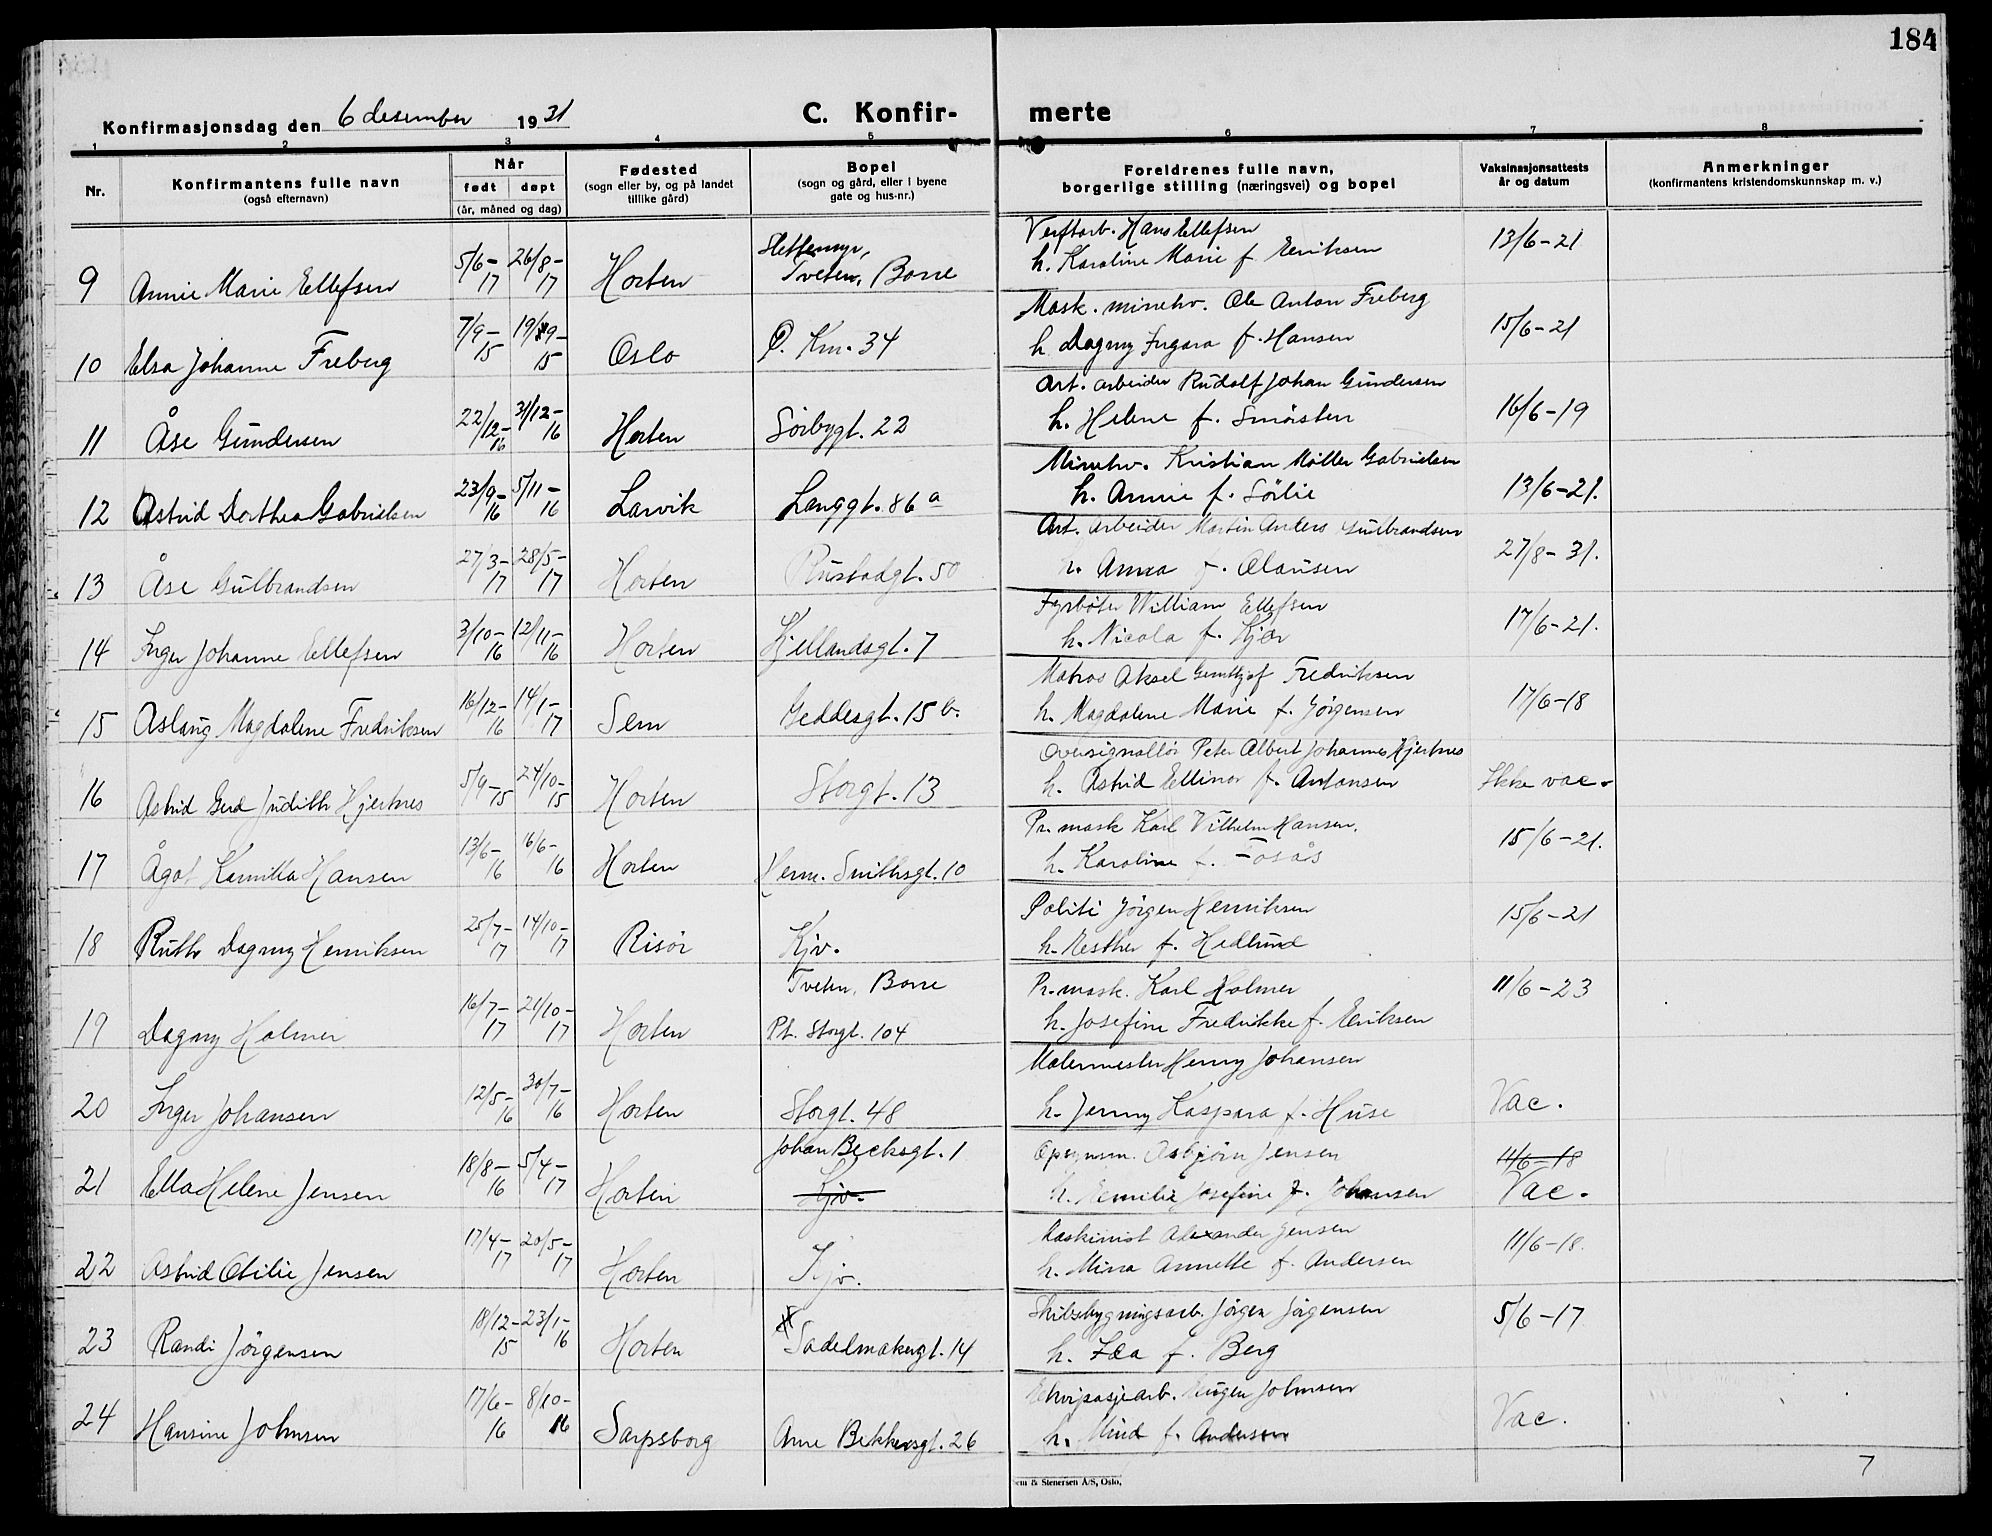 184
Konfirmasjonsdag den 6 desember 1931
C. Konfir- merte
1 2 3 4 5 6 7 8
Nr.
Konfirmantens fulle navn
(også efternavn)
Når
født døpt
(år, måned og dag)
Fødested
(sogn eller by, og på landet
tillike gård)
Bopel
(sogn og gård, eller i byene
gate og hus-nr.)
Foreldrenes fulle navn,
borgerlige stilling (næringsvei) og bopel
Vaksinasjonsattests
år og datum
Anmerkninger
(konfirmantens kristendomskunnskap m. v.)
Slettemyr, Verftarb. Hans Ellefsen 13/6-21
9 Annie Marie Ellefsen 5/6-17 26/8-17 Horten Tveten, Borre h. Karoline Marie f. Eriksen
Mask. minehv. Ole Anton Freberg
10 Elsa Johanne Freberg 7/9-15 19/9-15 Oslo P. Km. 34 h. Dagny Ingara f. Hansen 15/6-21
Art. arbeider Rudolf Johan Gundersen
11 Åse Gundersen 22/12-16 31/12-16 Horten Sörbygt. 22 h. Helene f. Smörsten 16/6-19
Minehv. Kristian Möller Gabrielsen
12 Astrid Dorthea Gabrielsen 23/9-16 5/11-16 Larvik Langgt. 86 a h. Annie f. Sörlie 13/6-21.
Art. arbeider Martin Anders Gulbrandsen
13 Åse Gulbrandsen 27/3-17 28/5-17 Horten Rustadgt. 50 h. Anna f. Olausen 27/8-31.
Fyrböter William Ellefsen
14 Inger Johanne Ellefsen 3/10-16 12/11-16 Horten Kjellandsgt. 7 h. Nicola f. Kjær 17/6-21.
Matros Aksel Fredriksen
15 Aslaug Magdalene Fredriksen 16/12-16 14/1-17 Sem Geddesgt. 15 b. h. Magdalene Marie f. Jörgensen 17/6-18
Oversignallör Peter Albert Johannes Hjertnes
16 Astrid Gerd Judith Hjertnes 5/9-15 24/10-15 Horten Storgt. 13 h. Astrid Ellinor f. Antonsen Ikke vac.
Pr. mask Karl Vilhelm Hansen.
17 Ågot Kamilla Hansen 13/6-16 6/6-16 Horten Herm. Smithsgt. 10 h. Karoline f. Fosås 15/6-21.
Politi Jörgen Henriksen
18 Ruth Dagmy Henriksen 25/7-17 14/10-17 Risör Kjv. h. Esther f. Hedlund 15/6-21
Tveten, Borre Pr. mask. Karl Holmer 11/6-23
19 Dagny Holmer 16/7-17 21/10-17 Horten Pt. Storgt. 104 h. Josefine Fredrikke f. Eriksen
Malermester Henry Johansen
20 Inger Johansen 12/5-16 30/7-16 Horten Storgt. 48 h. Jenny Kaspara f. Huse Vac.
Johan Becksgt. 1 Opsynsm. Asbjörn Jensen 11/6-18
21 Ella Helene Jensen 18/8-16 5/4-17 Horten Kjv. h. Emilie Josefine f. Johansen Vac.
Maskinist Alexander Jensen
22 Astrid Otilie Jensen 17/4-17 20/5-17 Horten Kjv. h. Mina Annette f. Andersen 11/6-18.
Skibsbygningsarb. Jörgen Jörgensen
23 Randi Jörgensen 18/12-15 23/1-16 Horten Sadelmakergt. 14 h. Lea f. Berg 5/6-17
Ekvipasjearb. Eugen Johnsen
24 Hansine Johnsen 17/6-16 8/10-16 Sarpsborg Arne Bekkersgt. 26 h. f. Andersen Vac.
7
Sem & Stenersen A/S, Oslo,